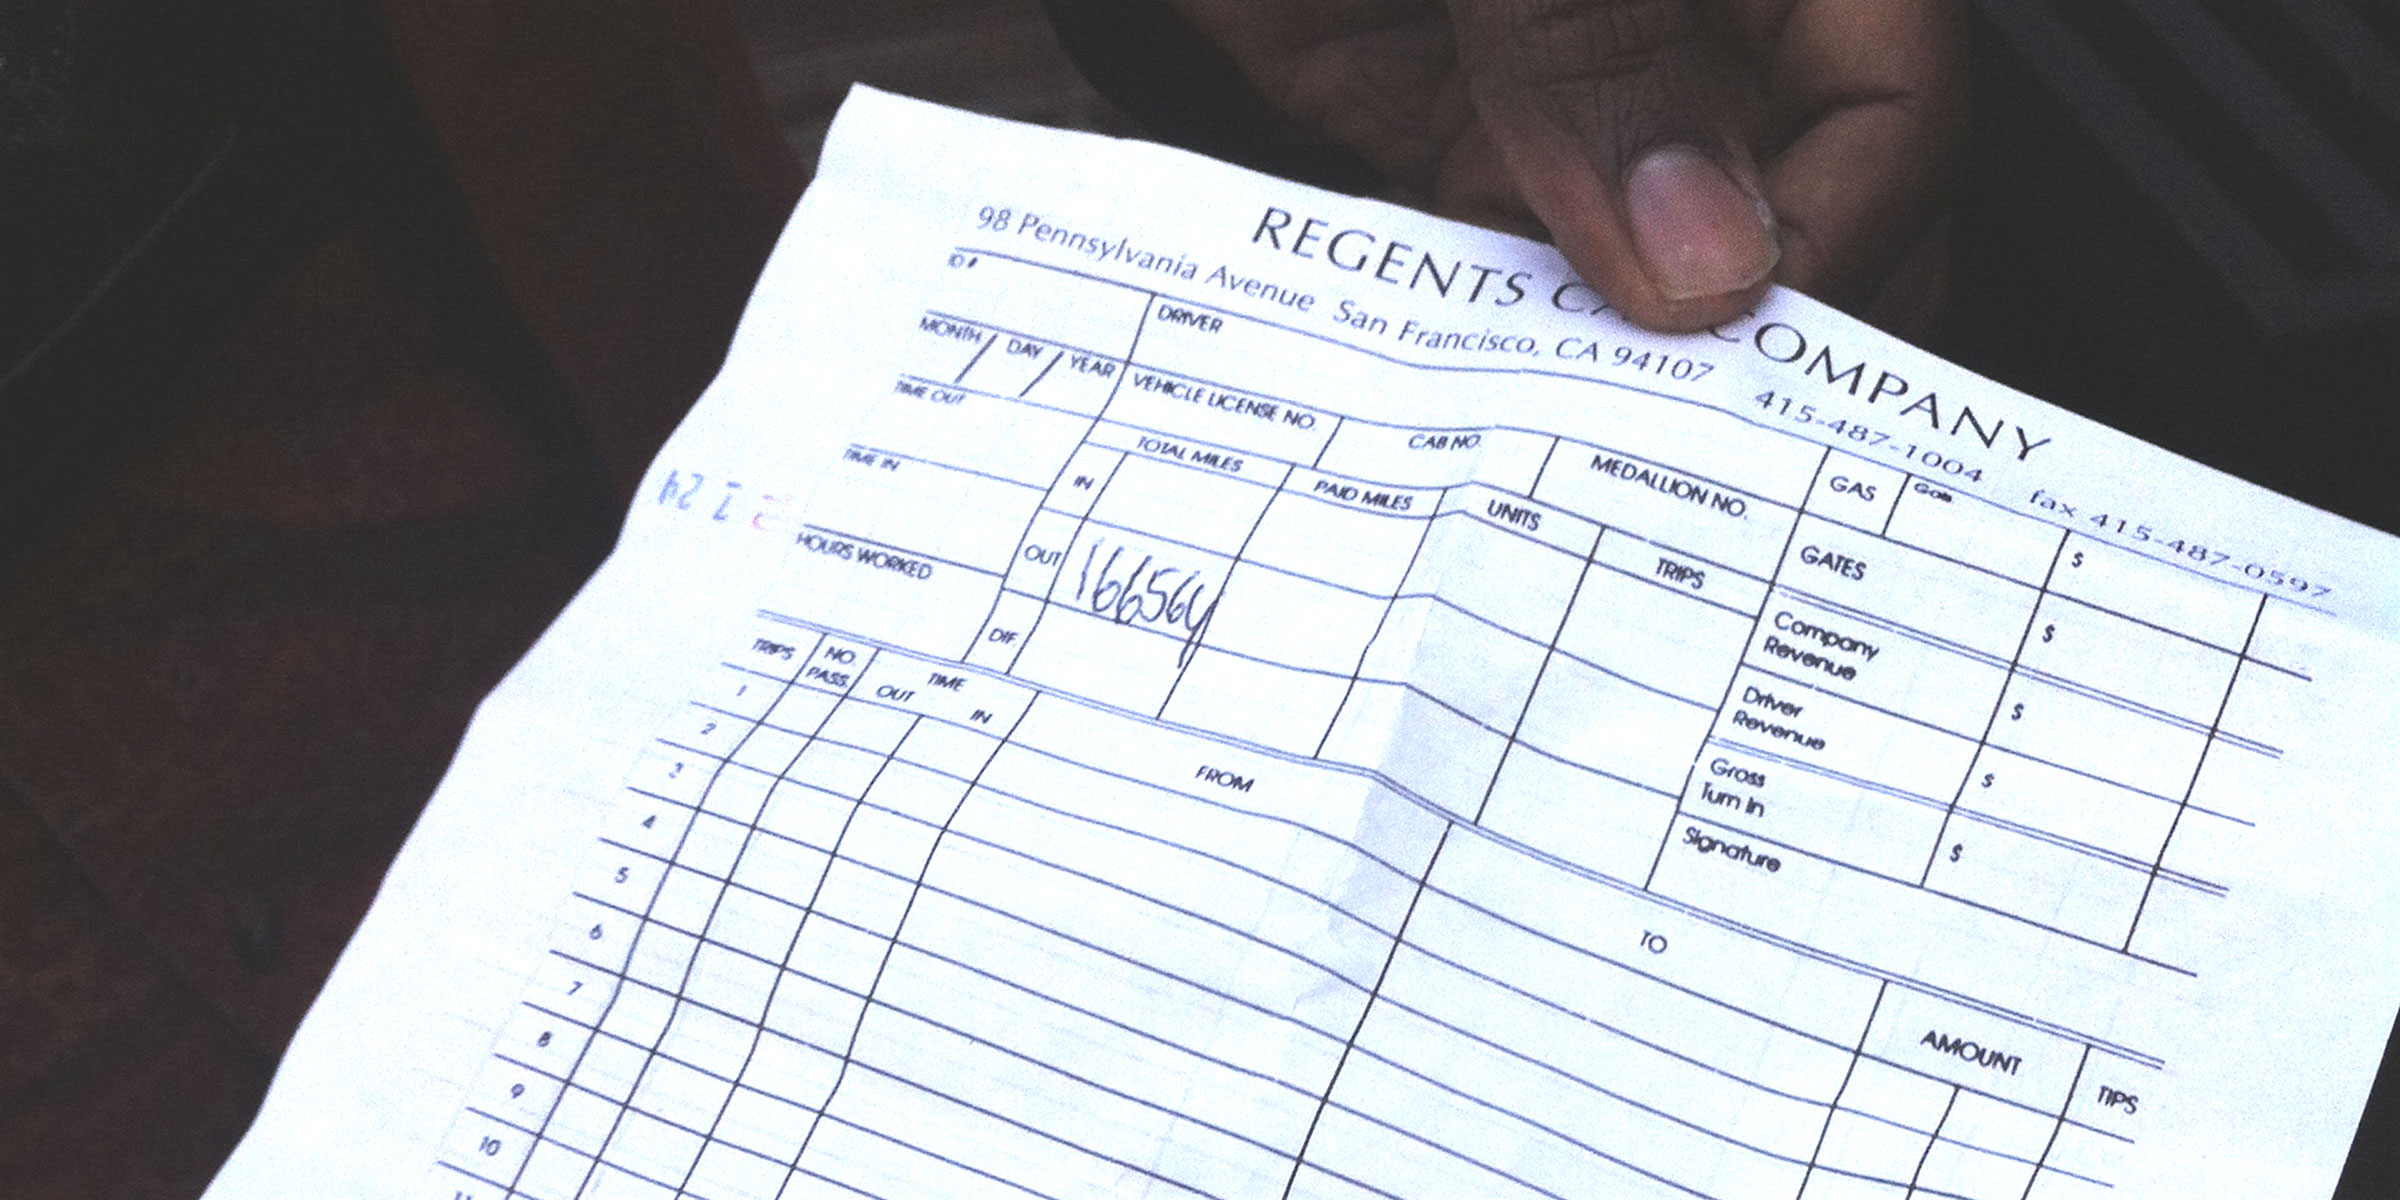 REGENTS CAB COMPANY
98 Pennsylvania Avenue San Francisco, CA 94107 415-487-1004 fax 415-487-0597
ID #
DRIVER
GAS Gals. $
MONTH / DAY / YEAR
VEHICLE LICENSE NO.
CAB NO.
MEDALLION NO.
GATES $
TIME OUT
TOTAL MILES
PAID MILES
UNITS
TRIPS
Company Revenue $
TIME IN
IN
OUT 166564
DIF.
Driver Revenue $
HOURS WORKED
Gross Turn In $
Signature
TRIPS
NO. PASS.
TIME
OUT IN
FROM
TO
AMOUNT
TIPS
1
2
3
4
5
6
7
8
9
10